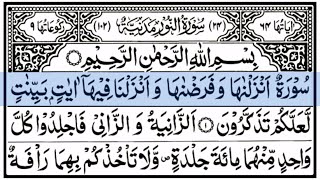 اٰیَاتُهَا ٦٤ (٢٤) سُوْرَةُ النُّوْرِ مَدَنِیَّةٌ (١٠٢) رُكُوْعَاتُهَا ٩
بِسْمِ اللّٰهِ الرَّحْمٰنِ الرَّحِیْمِ
سُوْرَةٌ اَنْزَلْنٰهَا وَ فَرَضْنٰهَا وَ اَنْزَلْنَا فِیْهَاۤ اٰیٰتٍۭ بَیِّنٰتٍ
لَّعَلَّكُمْ تَذَكَّرُوْنَ ۝١ اَلزَّانِیَةُ وَ الزَّانِیْ فَاجْلِدُوْا كُلَّ
وَاحِدٍ مِّنْهُمَا مِائَةَ جَلْدَةٍ۪ وَّ لَا تَاْخُذْكُمْ بِهِمَا رَاْفَةٌ